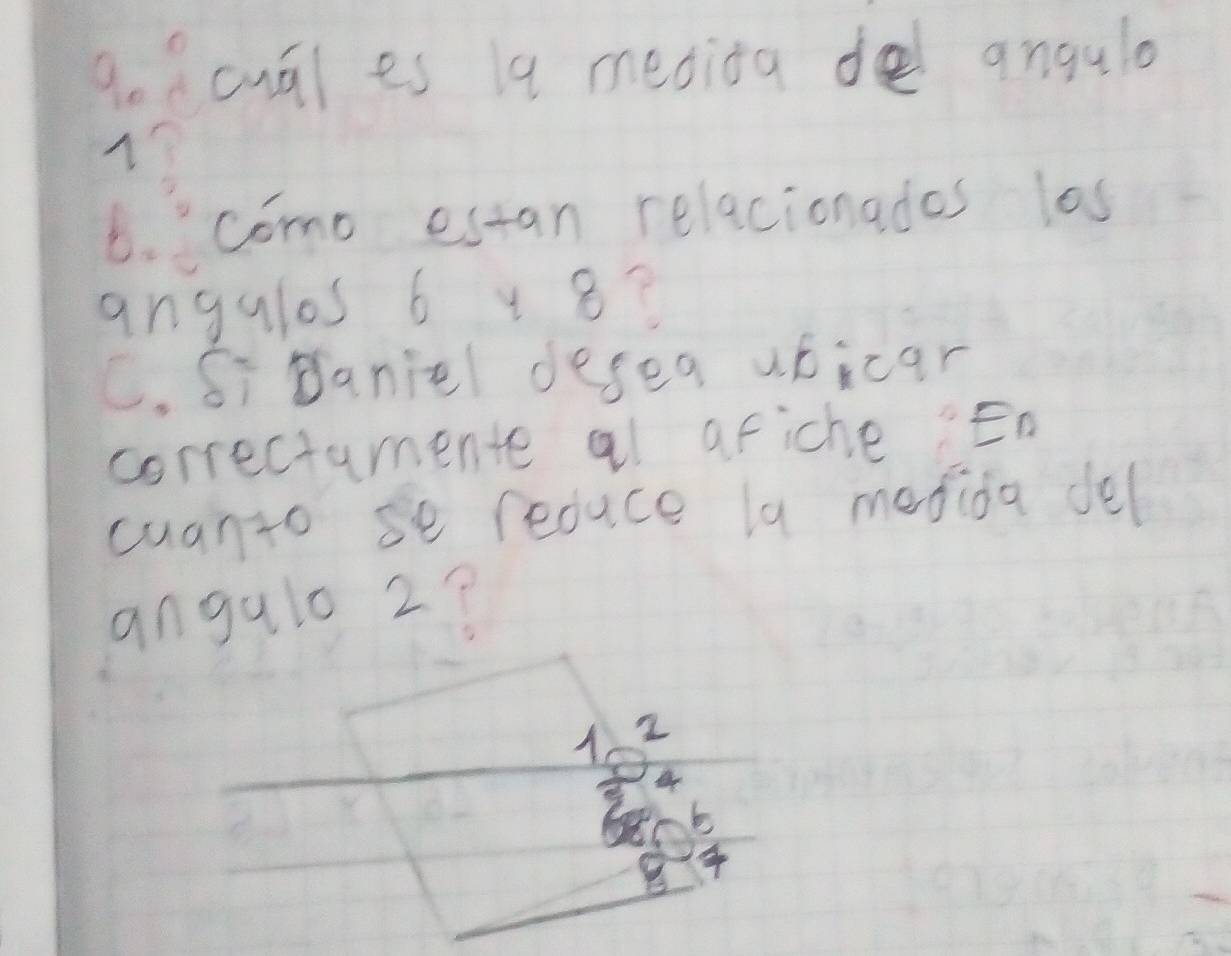 a. ¿cuál es la medida del angulo
1?
b. ¿cómo estan relacionados los
angulos 6 y 8?
C. Si Daniel desea ubicar
correctamente al afiche ¿En
cuanto se reduce la medida del
angulo 2?
1 2
4
6
7